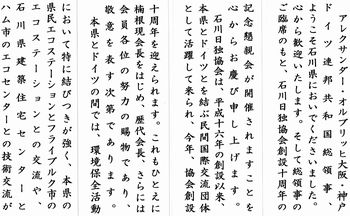 アレクサンダー・オルブリッヒ大阪・神戸
ドイツ連邦共和国総領事、
ようこそ石川県においでくださいました。
心から歓迎いたします。そして総領事の
ご臨席のもと、石川日独協会創設十周年の
記念懇親会が開催されますことを
心からお慶び申し上げます。
石川日独協会は、平成十六年の創設以来、
本県とドイツとを結ぶ民間国際交流団体
として活躍して来られ、今年、協会創設
十周年を迎えられます。これもひとえに
楠根現会長をはじめ、歴代会長、さらには
会員各位の努力の賜物であり、
敬意を表す次第であります。
本県とドイツの間では、環境保全活動
において特に結びつきが強く、本県の
県民エコステーションとフライブルク市の
エコステーションとの交流や、
石川県建築住宅センターと
ハム市のエコセンターとの技術交流が